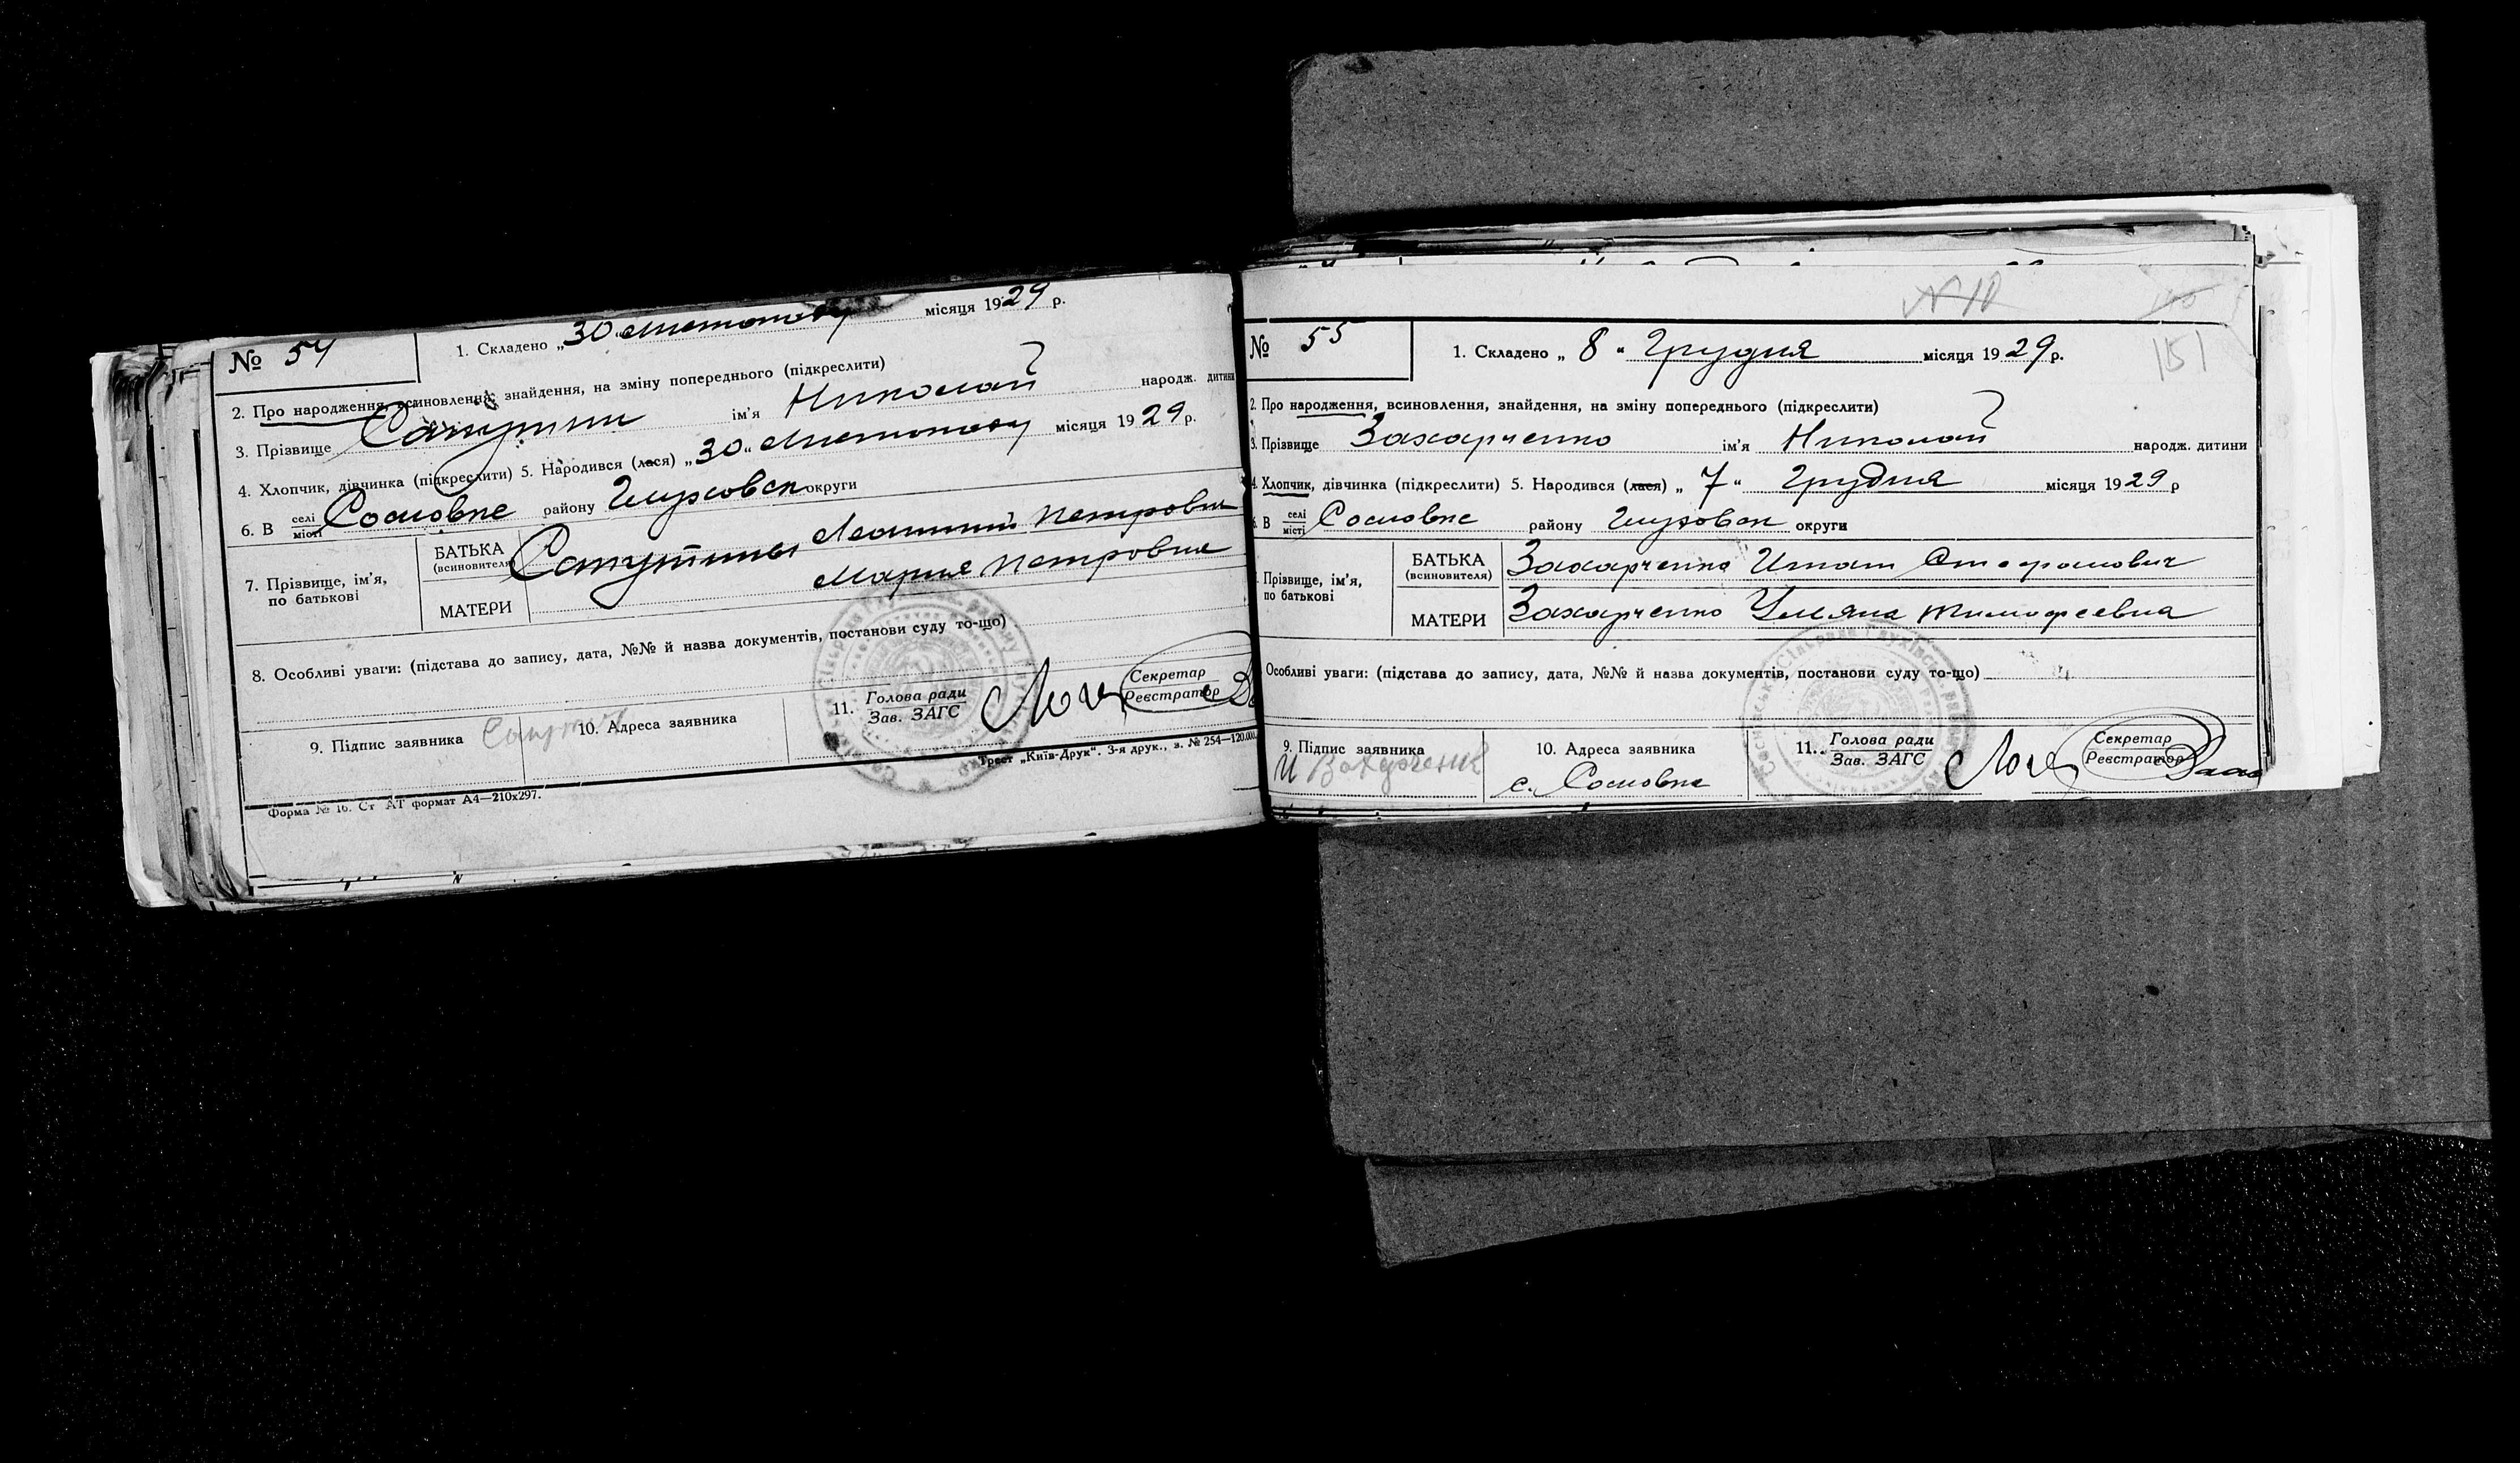 № 54
1. Складено „30" листопаду місяця 1929 р.
2. Про народження, всиновлення, знайдення, на зміну попереднього (підкреслити)
3. Прізвище ім'я Николай народж. дитини
4. Хлопчик, дівчинка (підкреслити) 5. Народився (лася) „30" листопаду місяця 1929 р.
6. В селі місті Сосновке району Глуховск округи
7. Прізвище, ім'я, по батькові
БАТЬКА (всиновителя) Петрович
МАТЕРИ Мария Петровна
8. Особливі уваги: (підстава до запису, дата, №№ й назва документів, постанови суду то-що)
9. Підпис заявника
10. Адреса заявника
11. Голова ради Зав. ЗАГС
Секретар Реєстратор
Трест „Київ-Друк". 3-я друк., з. № 254—120.000.
Форма № 16. Ст АТ формат А4—210х297.
N 18
151
№ 55
1. Складено „ 8 " Грудня місяця 1929 р.
2. Про народження, всиновлення, знайдення, на зміну попереднього (підкреслити)
3. Прізвище Захарченко ім'я Николай народж. дитини
4. Хлопчик, дівчинка (підкреслити) 5. Народився (лася) „ 7 " Грудня місяця 1929 р
6. В селі місті Сосновке району Глуховск округи
Прізвище, ім'я, по батькові
БАТЬКА (всиновителя) Захарченко Игнат Стефанович
МАТЕРИ Захарченко Ульяна Тимофеевна
Особливі уваги: (підстава до запису, дата, №№ й назва документів, постанови суду то-що)
9. Підпис заявника
И Захарченко
10. Адреса заявника
с. Сосновке
11. Голова ради Зав. ЗАГС
Секретар Реєстратор